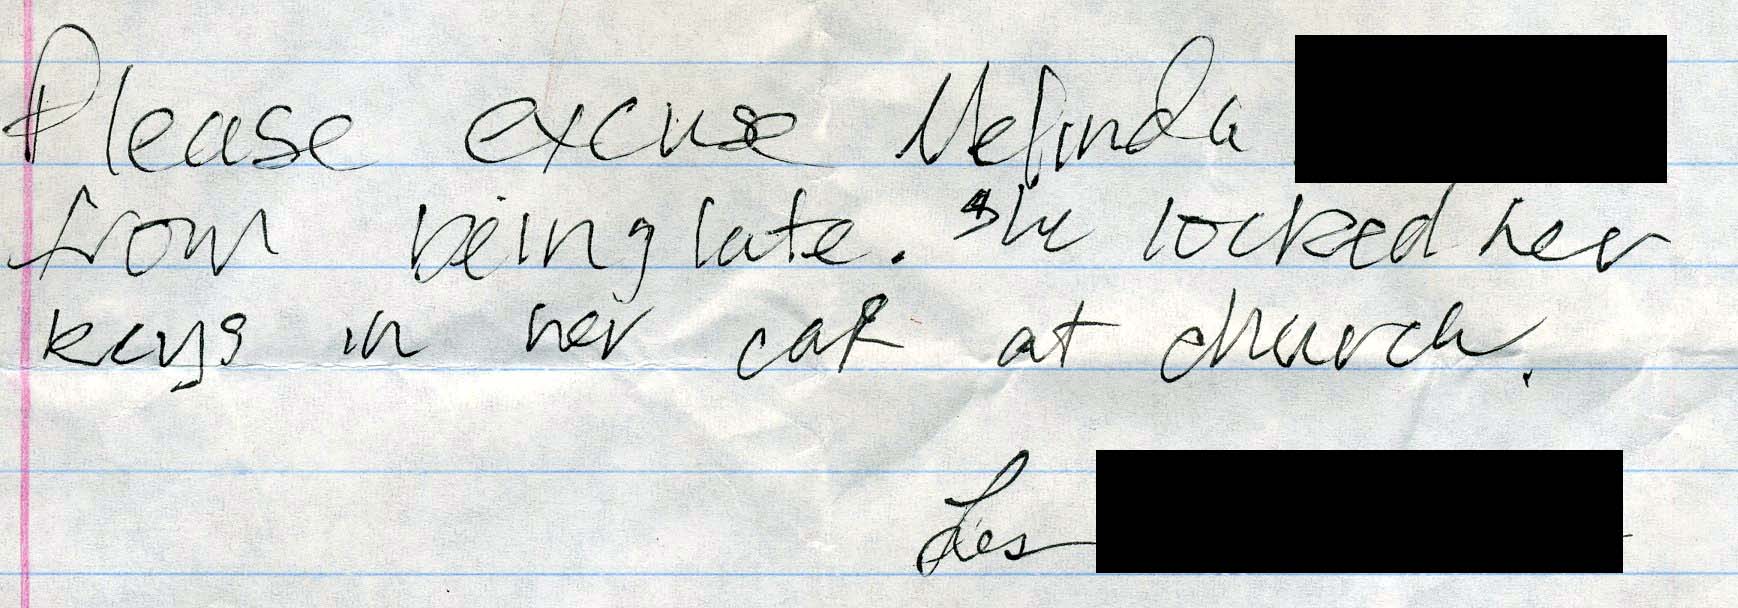 Please excuse Melinda
from being late. She locked her
keys in her car at church.
Les